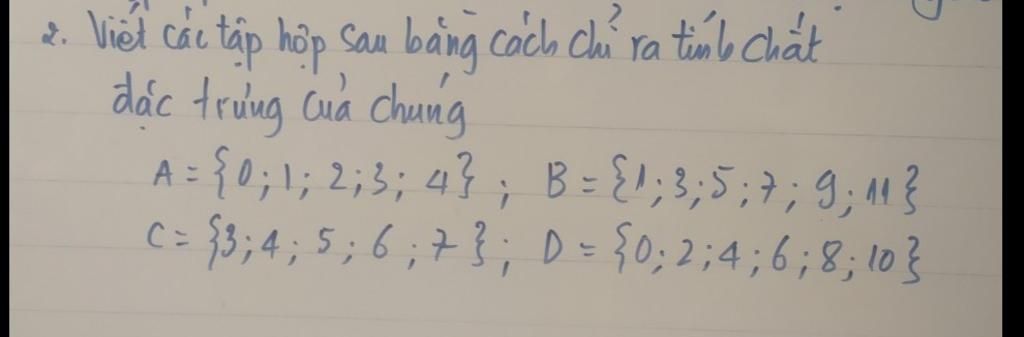 2. Viết các tập hợp sau bằng cách chỉ ra tính chất
đặc trưng của chúng
A = {0; 1; 2; 3; 4}; B = {1; 3; 5; 7; 9; 11}
C = {3; 4; 5; 6; 7}; D = {0; 2; 4; 6; 8; 10}